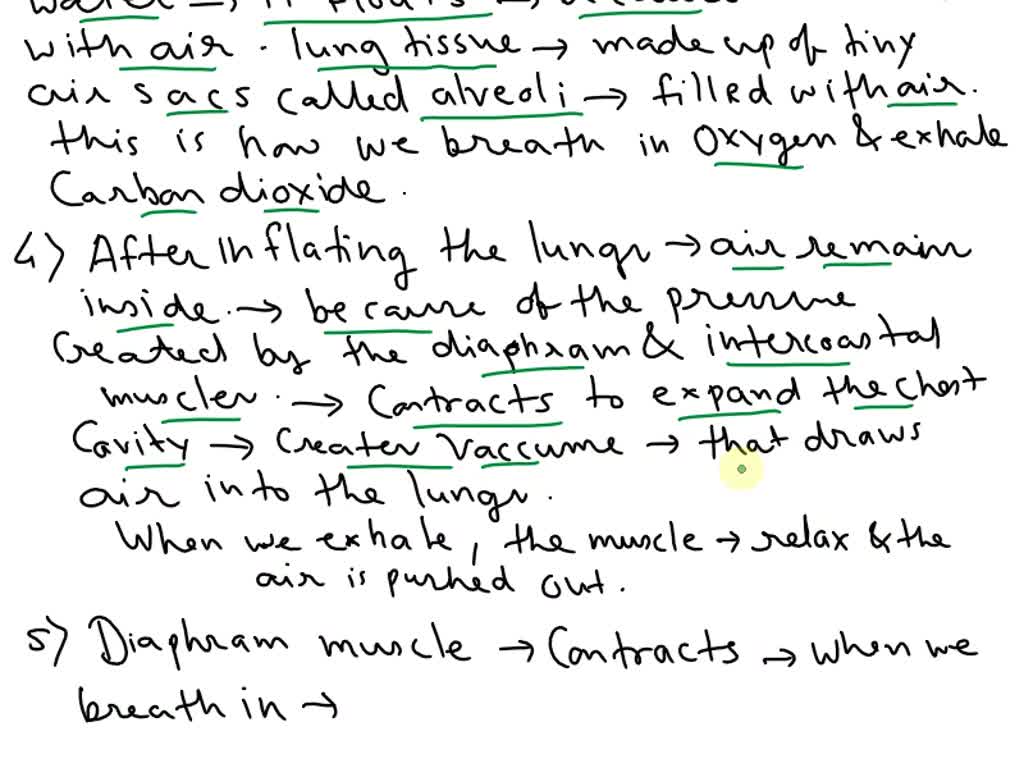 with air. lung tissue → made up of tiny
air sacs called alveoli → filled with air.
this is how we breath in oxygen & exhale
Carbon dioxide.
4) After Inflating the lungs → air remain
inside. → because of the pressure
Created by the diaphram & intercoastal
muscles. → Contracts to expand the chest
Cavity → Creates Vaccume → that draws
air into the lungs.
When we exhale, the muscle → relax & the
air is pushed out.
5) Diaphram muscle → Contracts → when we
breath in →